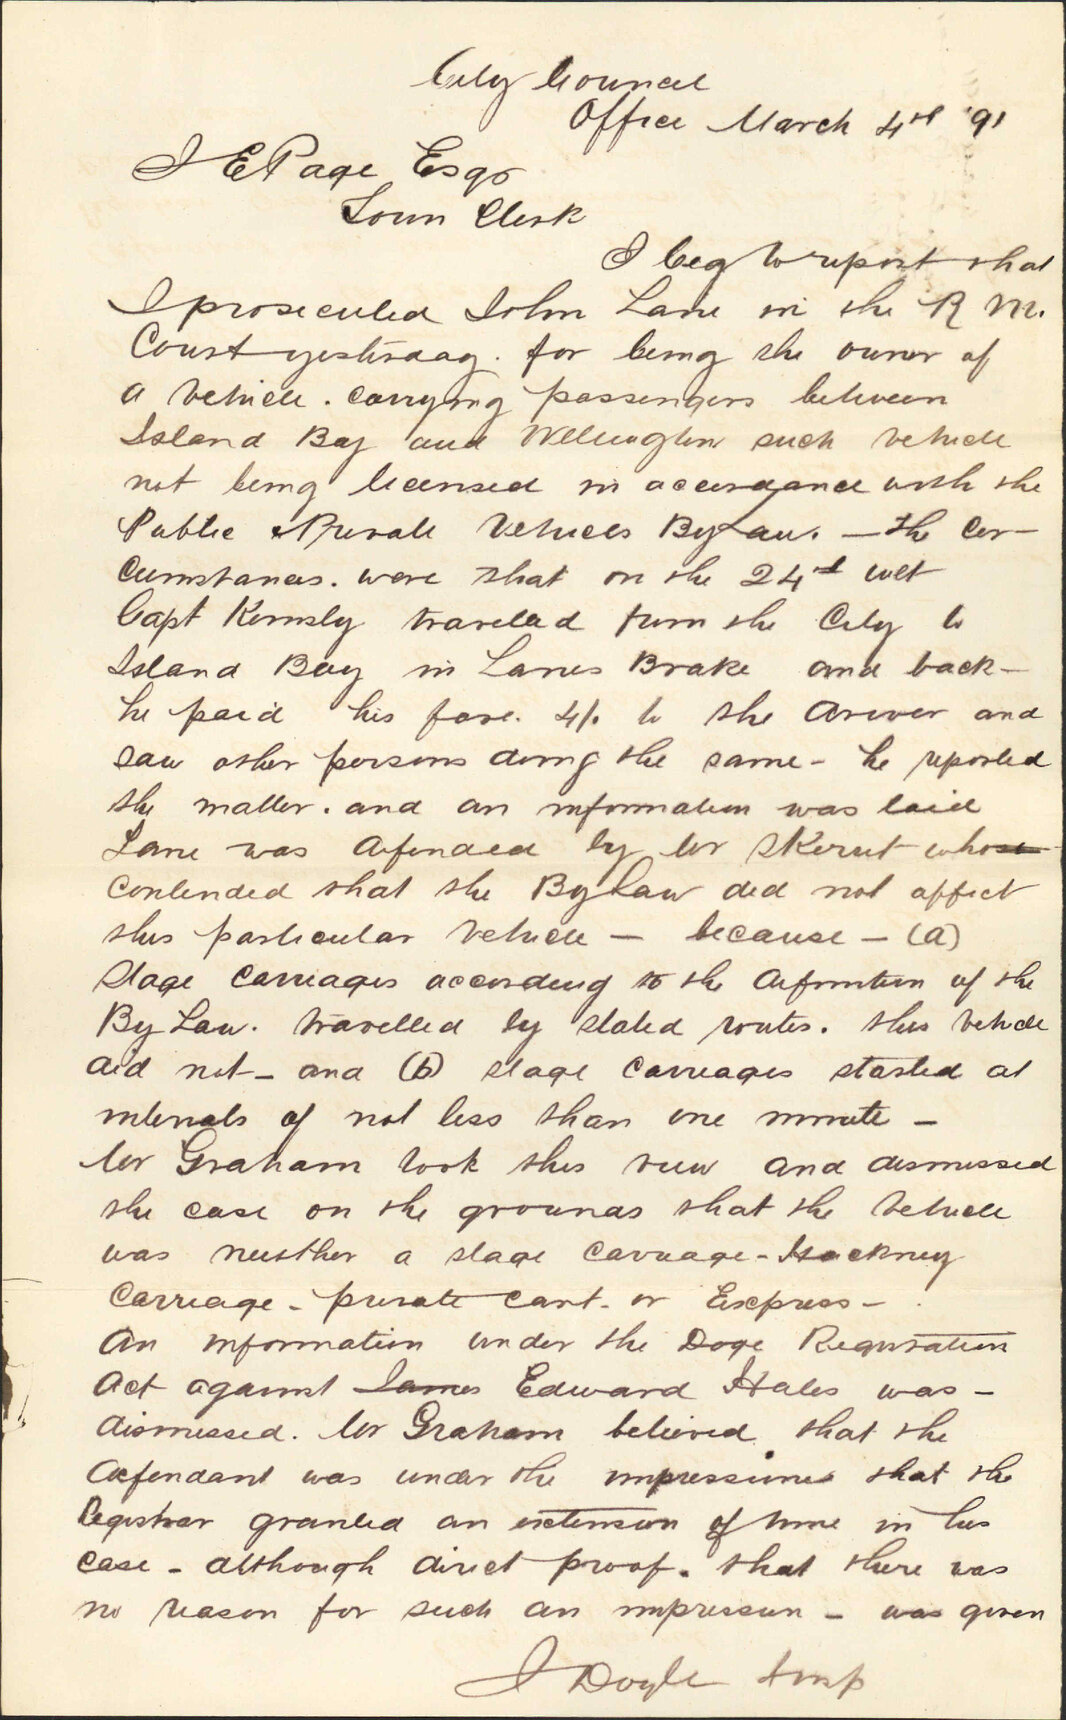 City Council
Office March 4th '91
J E Page Esqr
Town Clerk
I beg to report that
I prosecuted John Lane in the R M.
Court yesterday. for being the owner of
a vehicle. carrying passengers between
Island Bay and Wellington such vehicle
not being licensed in accordance with the
Public & Private Vehicles By Law. — the cir-
cumstances. were that on the 24th ult
Capt travelled from the City to
Island Bay in Lanes Brake and back —
he paid his fare. 4/. to the driver and
saw other persons doing the same - he reported
the matter. and an information was laid
Lane was defended by Mr Skerret who
contended that the By Law did not affect
this particular vehicle — because — (a)
Stage Carriages according to the definition of the
By Law. travelled by stated routes. this vehicle
did not - and (b) stage carriages started at
intervals of not less than one minute —
Mr Graham took this view and dismissed
the case on the grounds that the vehicle
was neither a stage carriage - Hackney
Carriage - private cart - or Express —
An information under the Dogs Registration
Act against James Edward Hales was —
dismissed. Mr Graham believed that the
defendant was under the impression that the
Registrar granted an extension of time in his
case - although direct proof. that there was
no reason for such an impression - was given
J Doyle Insp